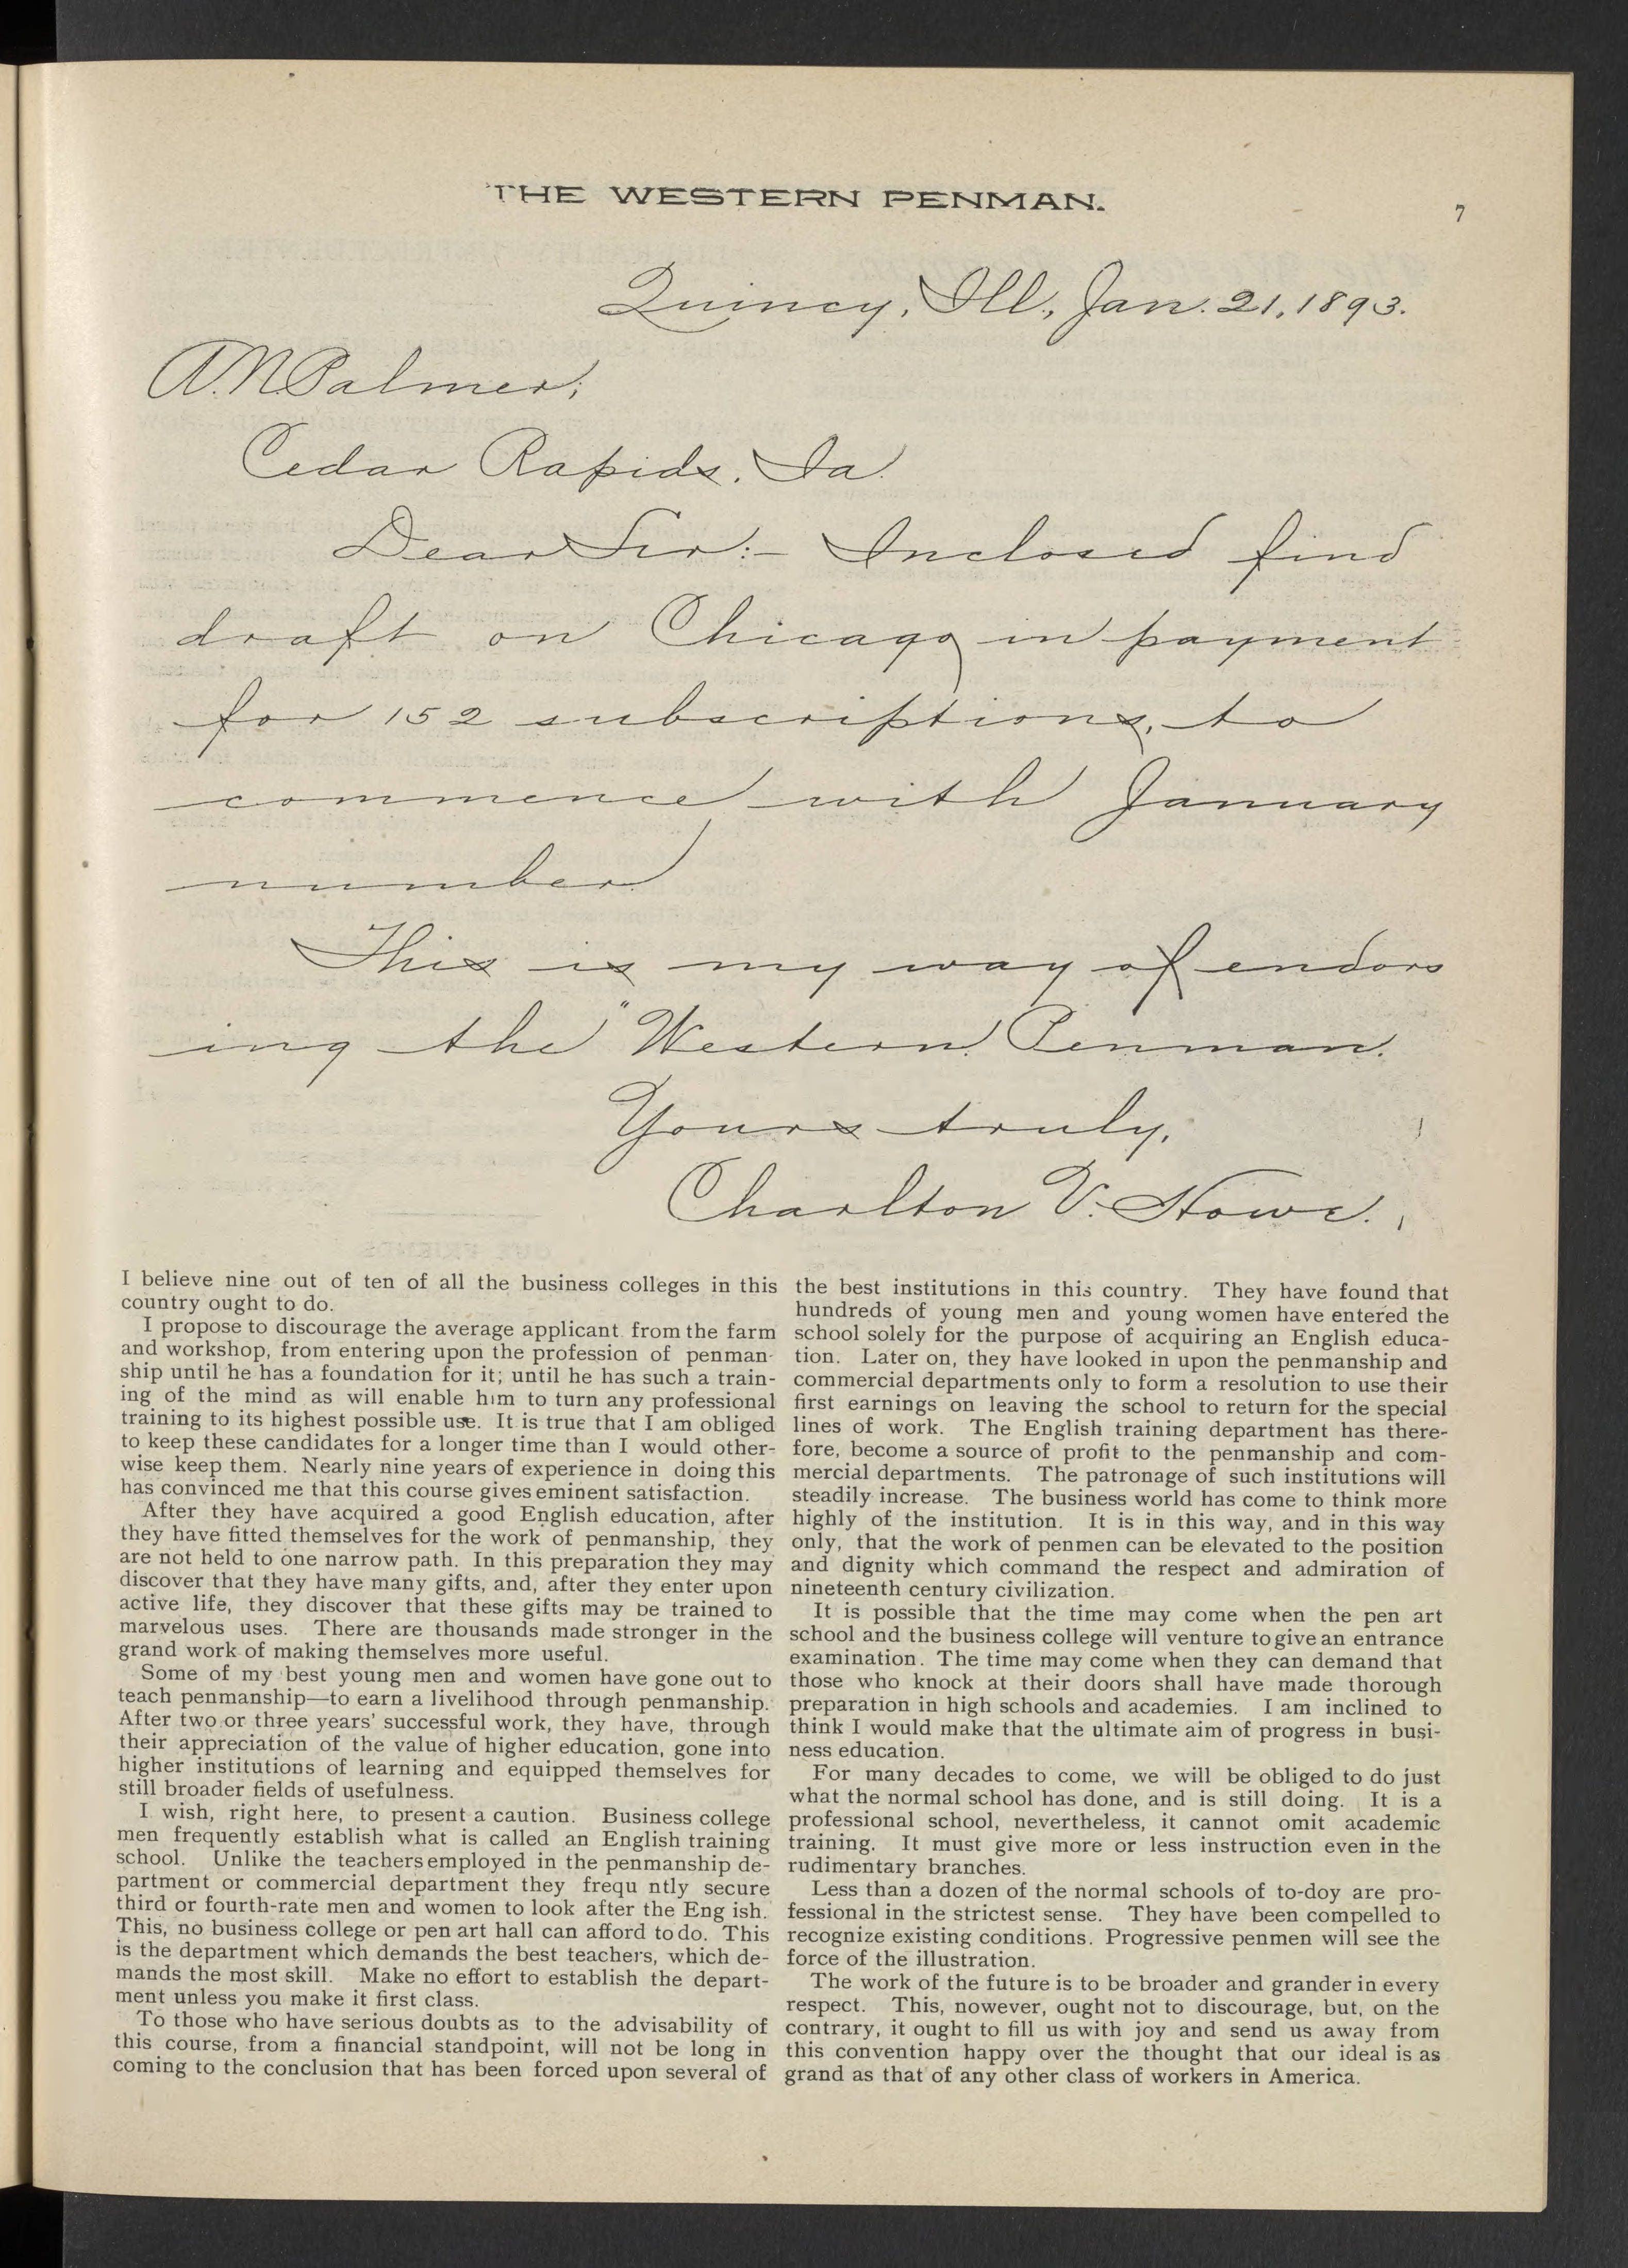 THE WESTERN PENMAN.
7
Quincy, Ill., Jan. 21, 1893.
A. N. Palmer,
Cedar Rapids, Ia.
Dear Sir:- Inclosed find
draft on Chicago in payment
for 152 subscriptions, to
commence with January
number.
This is my way of endors
ing the "Western Penman.
Yours truly,
Charlton V. Howe.
I believe nine out of ten of all the business colleges in this
country ought to do.
I propose to discourage the average applicant from the farm
and workshop, from entering upon the profession of penman-
ship until he has a foundation for it; until he has such a train-
ing of the mind as will enable him to turn any professional
training to its highest possible use. It is true that I am obliged
to keep these candidates for a longer time than I would other-
wise keep them. Nearly nine years of experience in doing this
has convinced me that this course gives eminent satisfaction.
After they have acquired a good English education, after
they have fitted themselves for the work of penmanship, they
are not held to one narrow path. In this preparation they may
discover that they have many gifts, and, after they enter upon
active life, they discover that these gifts may be trained to
marvelous uses. There are thousands made stronger in the
grand work of making themselves more useful.
Some of my best young men and women have gone out to
teach penmanship—to earn a livelihood through penmanship.
After two or three years' successful work, they have, through
their appreciation of the value of higher education, gone into
higher institutions of learning and equipped themselves for
still broader fields of usefulness.
I wish, right here, to present a caution. Business college
men frequently establish what is called an English training
school. Unlike the teachers employed in the penmanship de-
partment or commercial department they frequ ntly secure
third or fourth-rate men and women to look after the Eng ish.
This, no business college or pen art hall can afford to do. This
is the department which demands the best teachers, which de-
mands the most skill. Make no effort to establish the depart-
ment unless you make it first class.
To those who have serious doubts as to the advisability of
this course, from a financial standpoint, will not be long in
coming to the conclusion that has been forced upon several of
the best institutions in this country. They have found that
hundreds of young men and young women have entered the
school solely for the purpose of acquiring an English educa-
tion. Later on, they have looked in upon the penmanship and
commercial departments only to form a resolution to use their
first earnings on leaving the school to return for the special
lines of work. The English training department has there-
fore, become a source of profit to the penmanship and com-
mercial departments. The patronage of such institutions will
steadily increase. The business world has come to think more
highly of the institution. It is in this way, and in this way
only, that the work of penmen can be elevated to the position
and dignity which command the respect and admiration of
nineteenth century civilization.
It is possible that the time may come when the pen art
school and the business college will venture to give an entrance
examination. The time may come when they can demand that
those who knock at their doors shall have made thorough
preparation in high schools and academies. I am inclined to
think I would make that the ultimate aim of progress in busi-
ness education.
For many decades to come, we will be obliged to do just
what the normal school has done, and is still doing. It is a
professional school, nevertheless, it cannot omit academic
training. It must give more or less instruction even in the
rudimentary branches.
Less than a dozen of the normal schools of to-doy are pro-
fessional in the strictest sense. They have been compelled to
recognize existing conditions. Progressive penmen will see the
force of the illustration.
The work of the future is to be broader and grander in every
respect. This, nowever, ought not to discourage, but, on the
contrary, it ought to fill us with joy and send us away from
this convention happy over the thought that our ideal is as
grand as that of any other class of workers in America.